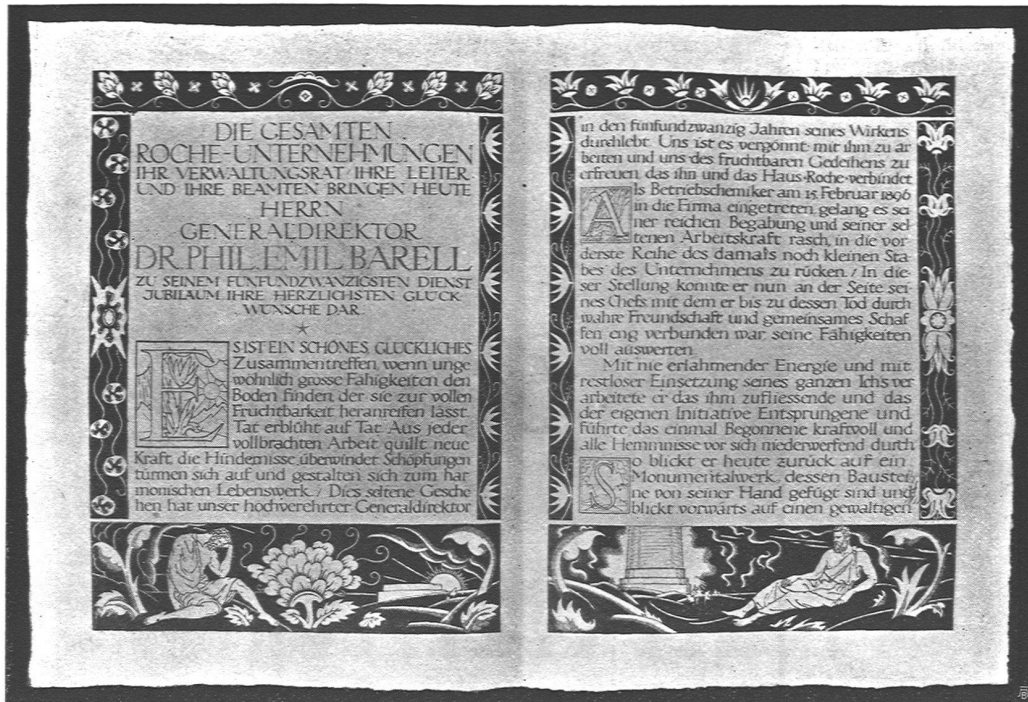 DIE GESAMTEN
ROCHE-UNTERNEHMUNGEN
IHR VERWALTUNGSRAT IHRE LEITER
UND IHRE BEAMTEN BRINGEN HEUTE
HERRN
GENERALDIREKTOR
DR. PHIL. EMIL BARELL
ZU SEINEM FÜNFUNDZWANZIGSTEN DIENST
JUBILÄUM IHRE HERZLICHSTEN GLÜCK
WÜNSCHE DAR
ES IST EIN SCHÖNES, GLÜCKLICHES
Zusammentreffen, wenn unge
wöhnlich grosse Fähigkeiten den
Boden finden, der sie zur vollen
Fruchtbarkeit heranreifen lässt.
Tat erblüht auf Tat. Aus jeder
vollbrachten Arbeit quillt neue
Kraft, die Hindernisse überwindet. Schöpfungen
türmen sich auf und gestalten sich zum har
monischen Lebenswerk. / Dies seltene Gesche
hen hat unser hochverehrter Generaldirektor
in den fünfundzwanzig Jahren seines Wirkens
durchlebt. Uns ist es vergönnt, mit ihm zu ar
beiten und uns des fruchtbaren Gedeihens zu
erfreuen, das ihn und das Haus Roche verbindet.
Als Betriebschemiker am 15. Februar 1896
in die Firma eingetreten, gelang es sei
ner reichen Begabung und seiner sel
tenen Arbeitskraft rasch, in die vor
derste Reihe des damals noch kleinen Sta
bes des Unternehmens zu rücken. / In die
ser Stellung konnte er nun an der Seite sei
nes Chefs, mit dem er bis zu dessen Tod durch
wahre Freundschaft und gemeinsames Schaf
fen eng verbunden war, seine Fähigkeiten
voll auswerten.
Mit nie erlahmender Energie und mit
restloser Einsetzung seines ganzen Ich's ver
arbeitete er das ihm zufliessende und das
der eigenen Initiative Entsprungene und
führte das einmal Begonnene kraftvoll und
alle Hemmnisse vor sich niederwerfend durch.
So blickt er heute zurück auf ein
Monumentalwerk, dessen Baustei
ne von seiner Hand gefügt sind und
blickt vorwärts auf einen gewaltigen